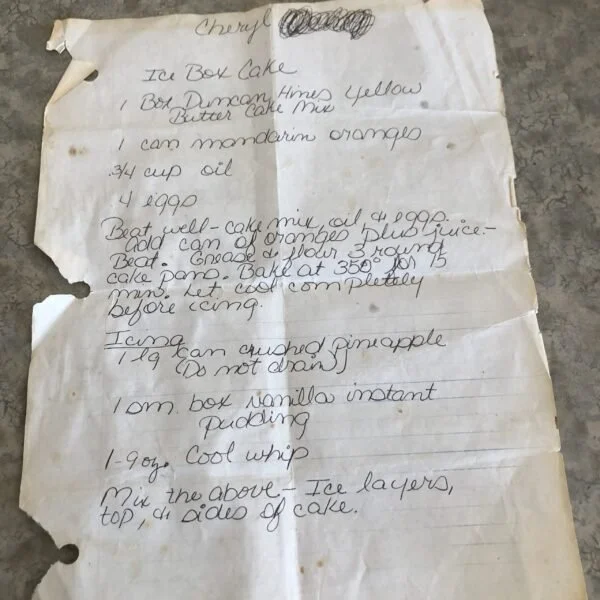 Cheryl
Ice Box Cake
1 Box Duncan Hines Yellow
Butter Cake Mix
1 can mandarin oranges
3/4 cup oil
4 eggs
Beat well - cake mix, oil & eggs.
Add can of oranges plus juice -
Beat. Grease & flour 3 round
cake pans. Bake at 350° for 15
min. Let cool completely
before icing.
Icing
1 lg can crushed pineapple
(Do not drain)
1 sm. box vanilla instant
pudding
1-9 oz. Cool whip
Mix the above - Ice layers,
top, & sides of cake.